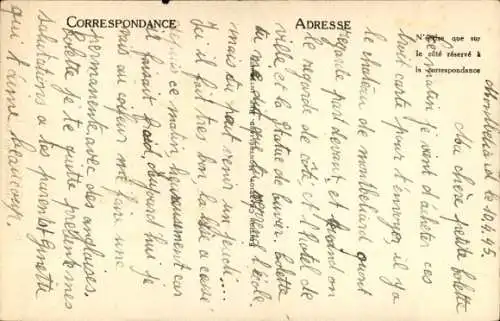 CORRESPONDANCE
ADRESSE
N'écrire que sur
le côté réservé à
la correspondance
le 10.4.45
Ma chère petite Colette
je vient d'acheter ces
huit carte pour t'envoyer, il y a
le chateau de montbéliard quant
regarde part devant, et quand on
le regarde de côté, et l'hôtel de
ville et la statue de Cuvier. Colette
tu me dit que tu l'école
mais du peut venir un jeudi...
Ici il fait très bon la a cassé
ce matin heureusement car
il faisait froid Aujourd'hui je
vais au coiffeur me faire une
permanente avec des anglaises.
Colette je te quitte présente mes
salutations a tes parents Ginette
qui t'aime beaucoup.